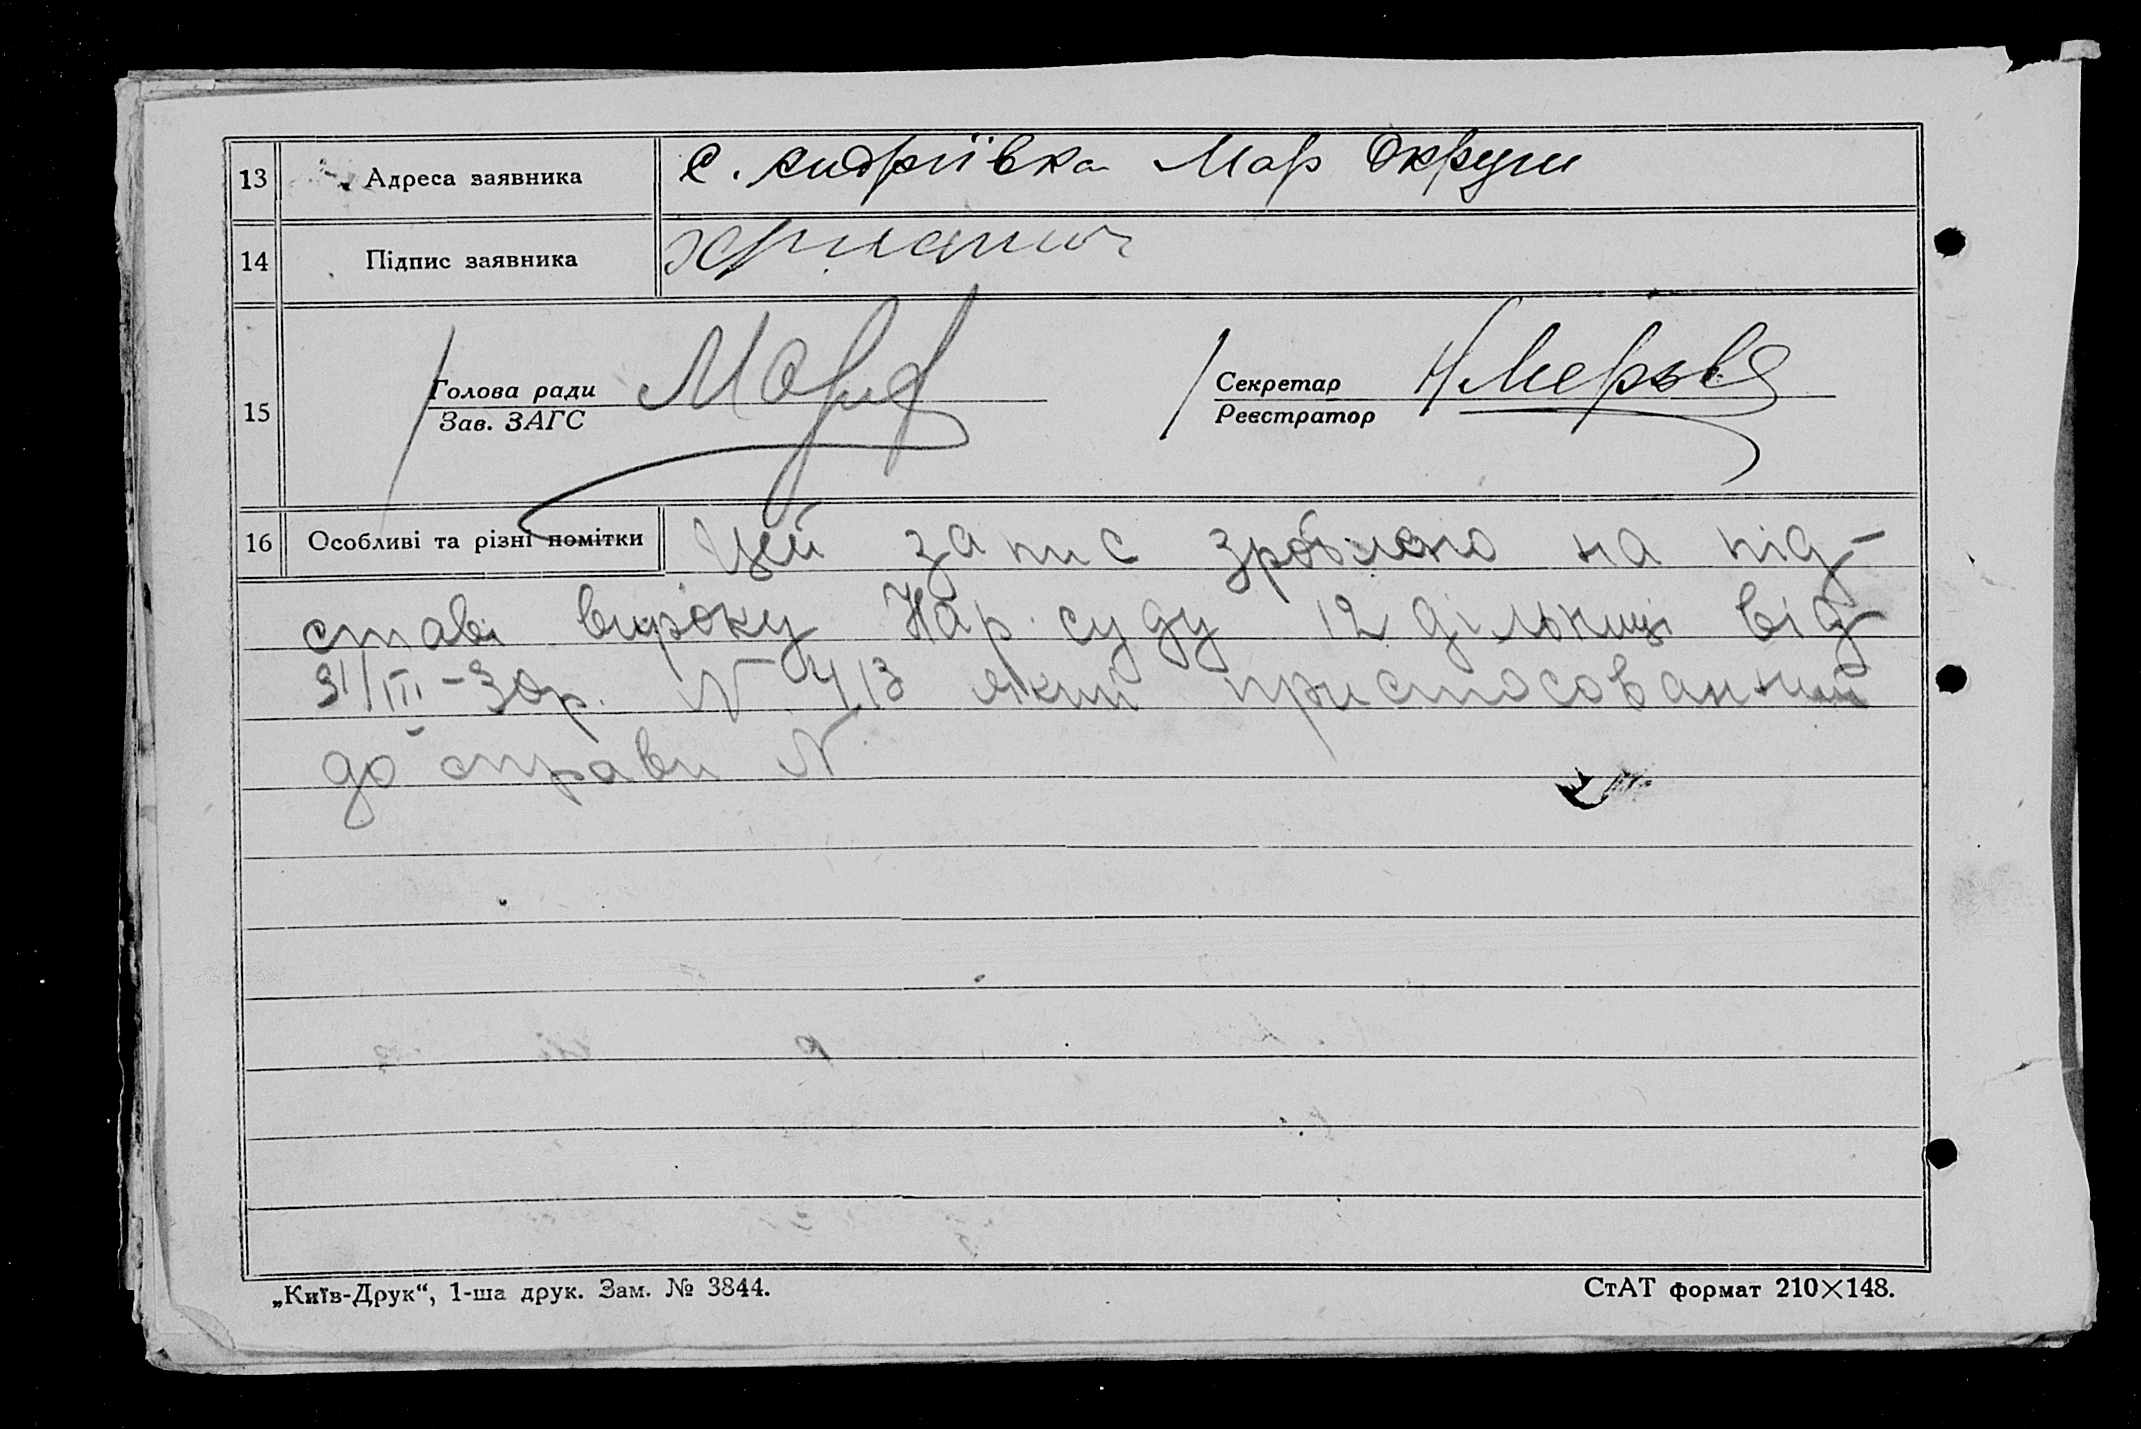 13 Адреса заявника с. Андріївка Мар Округи
14 Підпис заявника
15 Голова ради Секретар
Зав. ЗАГС Реєстратор
16 Особливі та різні помітки Цей запис зроблено на під-
ставі вироку Нар. суду 12 дільниці від
31/III-30р. N 413 який пристосований
до справи N
„Київ-Друк“, 1-ша друк. Зам. № 3844. СтАТ формат 210×148.